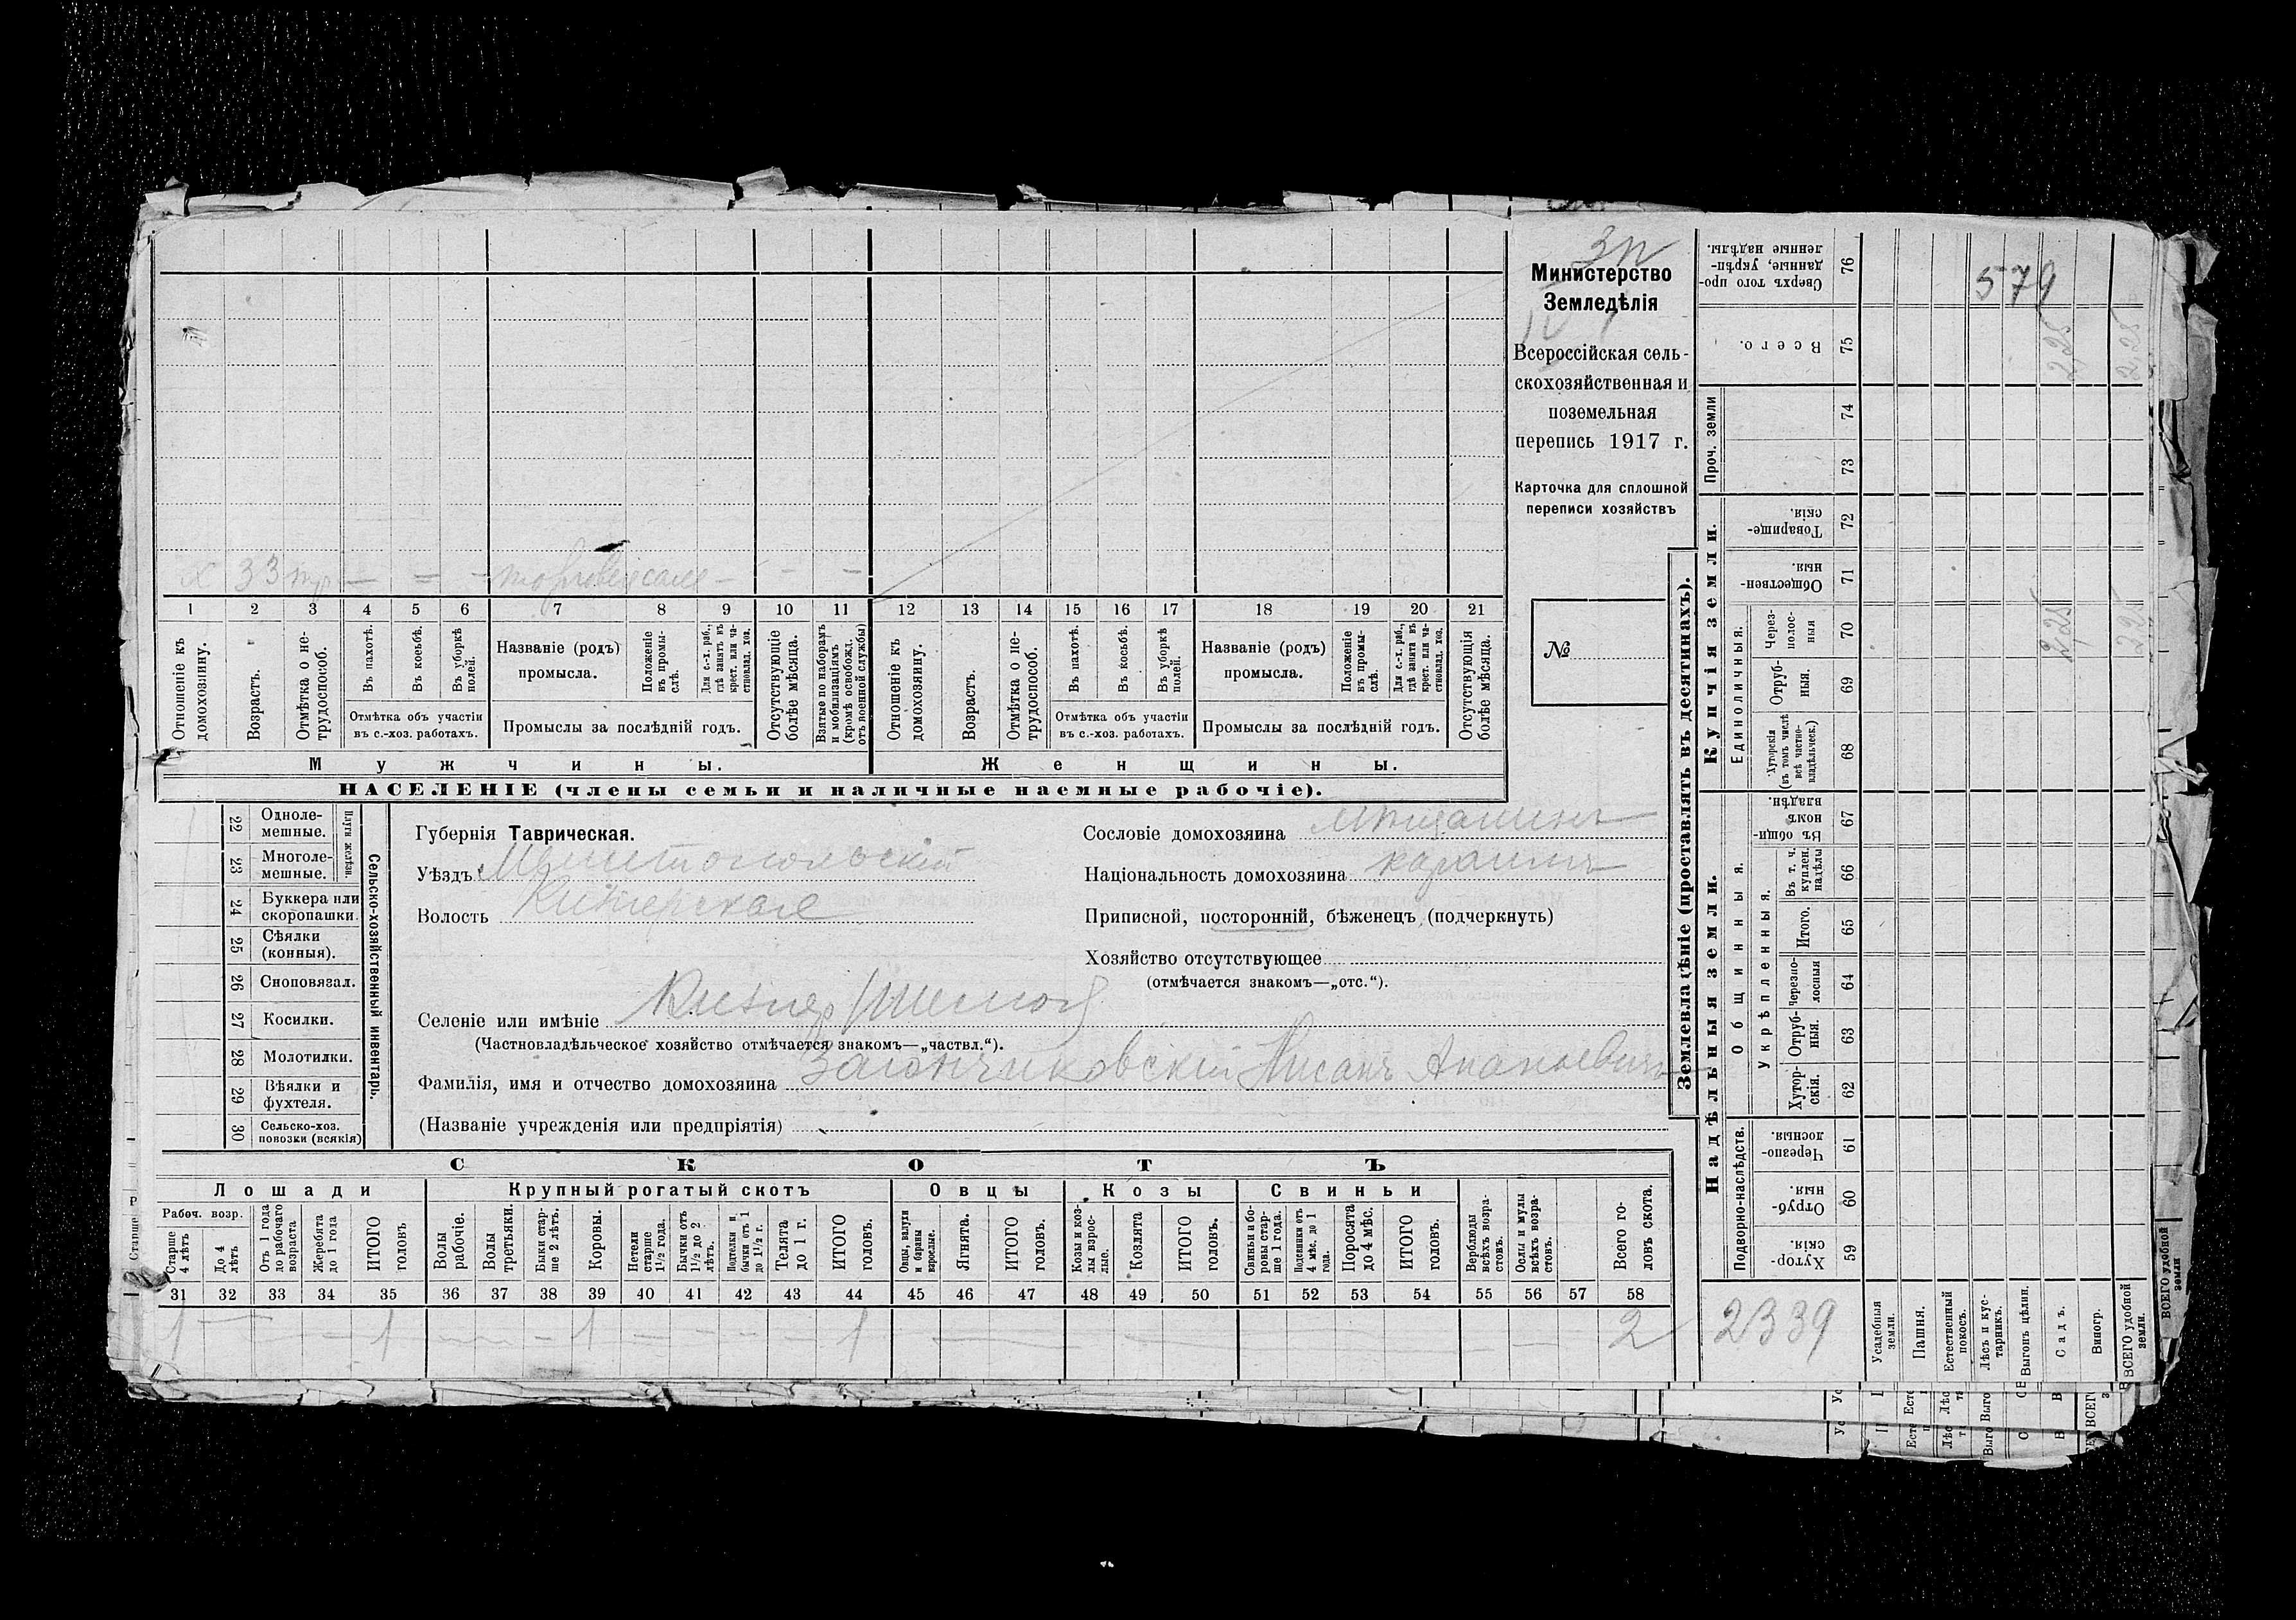 Зп
Министерство
Земледѣлія
Всероссійская сель-
скохозяйственная и
поземельная
перепись 1917 г.
Карточка для сплошной
переписи хозяйствъ
№
х 33 – = –
1 2 3 4 5 6 7 8 9 10 11 12 13 14 15 16 17 18 19 20 21
Отношеніе къ домохозяину.
Возрастъ.
Отмѣтка о не-трудоспособ.
Въ пахотѣ.
Въ косьбѣ.
Въ уборкѣ полей.
Отмѣтка объ участіи
въ с.-хоз. работахъ.
Названіе (родъ)
промысла.
Положеніе въ промы-слѣ.
Для с.-х. раб., гдѣ занятъ въ крест. или ча-стновлад. хоз.
Промыслы за послѣдній годъ.
Отсутствующіе болѣе мѣсяца.
Взятые по наборамъ и мобилизаціямъ (кромѣ освобожд. отъ военной службы)
Отношеніе къ домохозяину.
Возрастъ.
Отмѣтка о не-трудоспособ.
Въ пахотѣ.
Въ косьбѣ.
Въ уборкѣ полей.
Отмѣтка объ участіи
въ с.-хоз. работахъ.
Названіе (родъ)
промысла.
Положеніе въ промы-слѣ.
Для с.-х. раб., гдѣ занята въ крест. или ча-стновлад. хоз.
Промыслы за послѣдній годъ.
Отсутствующія болѣе мѣсяца.
Мужчины.
Женщины.
НАСЕЛЕНІЕ (члены семьи и наличные наемные рабочіе).
Сельско-хозяйственный инвентарь.
Плуги желѣзн.
22 Одноле-мешные.
23 Многоле-мешные.
24 Буккера или скоропашки.
25 Сѣялки (конныя).
26 Сноповязал.
27 Косилки.
28 Молотилки.
29 Вѣялки и фухтеля.
30 Сельско-хоз. повозки (всякія)
Губернія Таврическая.
Уѣздъ Мелитопольскій
Волость
Сословіе домохозяина мѣщанинъ
Національность домохозяина караимъ
Приписной, посторонній, бѣженецъ (подчеркнуть)
Хозяйство отсутствующее
(отмѣчается знакомъ—„отс.“).
Селеніе или имѣніе
(Частновладѣльческое хозяйство отмѣчается знакомъ—„частвл.“).
Фамилія, имя и отчество домохозяина Заіончиковскій Нисанъ Ананьевичъ
(Названіе учрежденія или предпріятія)
СКОТЪ
Лошади
Крупный рогатый скотъ
Овцы
Козы
Свиньи
Рабоч. возр.
Старше 4 лѣтъ
До 4 лѣтъ
Отъ 1 года до рабочаго возраста
Жеребята до 1 года
ИТОГО головъ
Волы рабочіе.
Волы третьяки.
Быки стар-ше 2 лѣтъ.
Коровы.
Нетели старше 1½ года.
Бычки отъ 1½ до 2 лѣтъ.
Подтелки и бычки отъ 1 до 1½ г.
Телята до 1 г.
ИТОГО головъ.
Овцы, валухи и бараны взрослые.
Ягнята.
ИТОГО головъ.
Козы и коз-лы взрос-лые.
Козлята
ИТОГО головъ.
Свиньи и бо-ровы стар-ше 1 года.
Подсвинки отъ 4 мѣс. до 1 года.
Поросята до 4 мѣс.
ИТОГО головъ.
Верблюды всѣхъ возра-стовъ.
Ослы и мулы всѣхъ возра-стовъ.
Всего го-ловъ скота.
31 32 33 34 35 36 37 38 39 40 41 42 43 44 45 46 47 48 49 50 51 52 53 54 55 56 57 58
1 1 1 1 2
Землевладѣніе (проставлять въ десятинахъ).
Надѣльныя земли.
Купчія земли.
Проч. земли
Подворно-наслѣдств.
Общинныя.
Укрѣпленныя.
Единоличныя.
Хутор-скія. 59
Отруб-ныя. 60
Черезпо-лосныя 61
Хутор-скія. 62
Отруб-ныя. 63
Черезпо-лосныя 64
Итого. 65
Въ т. ч. куплен. надѣлы 66
Въ общи-номъ владѣн. 67
Хуторскія (въ томъ числѣ всѣ частно-владѣльческ.) 68
Отруб-ныя. 69
Через-полос-ныя 70
Обществен-ныя. 71
Товарище-скія. 72
73
74
Всего. 75
Сверхъ того про-данные, укрѣп-ленные надѣлы. 76
579
2,25
2,25
2,25
2,25
2339
Усадебныя земли.
Пашня.
Естественный покосъ.
Лѣсъ и кус-тарникъ.
Выгонъ цѣлин.
Садъ.
Виногр.
ВСЕГО удобной земли.
ВСЕГО удобной земли
Старше